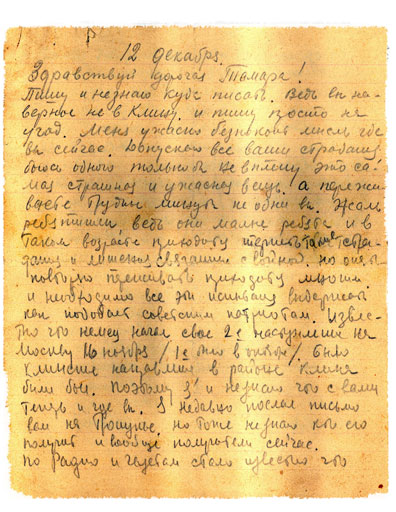 12 декабря.
Здравствуй дорогая Тамара!
Пишу и незнаю куда писать. Ведь вы на-
верное не в Клину. и пишу просто на
угад. Меня ужасно безпокоит мысль где
вы сейчас. Допускаю все ваши страдания
боюсь одного только бы не в плену это са-
мая страшная и ужасная вещь. а пережи-
ваете трудные минуты не одни вы. Жаль
ребятишек, ведь они малые ребята и в
таком возрасте приходится терпеть такие страд-
ания и лишения связанные с войной. но опять
повторяю переживать приходится многим
и необходимо все эти испытания выдержать
как подобает советским патриотам. Извес-
тно что немец начал свое 2е наступление на
Москву 16 ноября /1е было в октябре/. Было
Клинское направление в районе Клина
были бои. Поэтому я и незнаю что с вами
теперь и где вы. Я недавно послал письмо
вам на но тоже незнаю кто его
получит и вообще получат ли сейчас.
По радио и газетам стало известно что